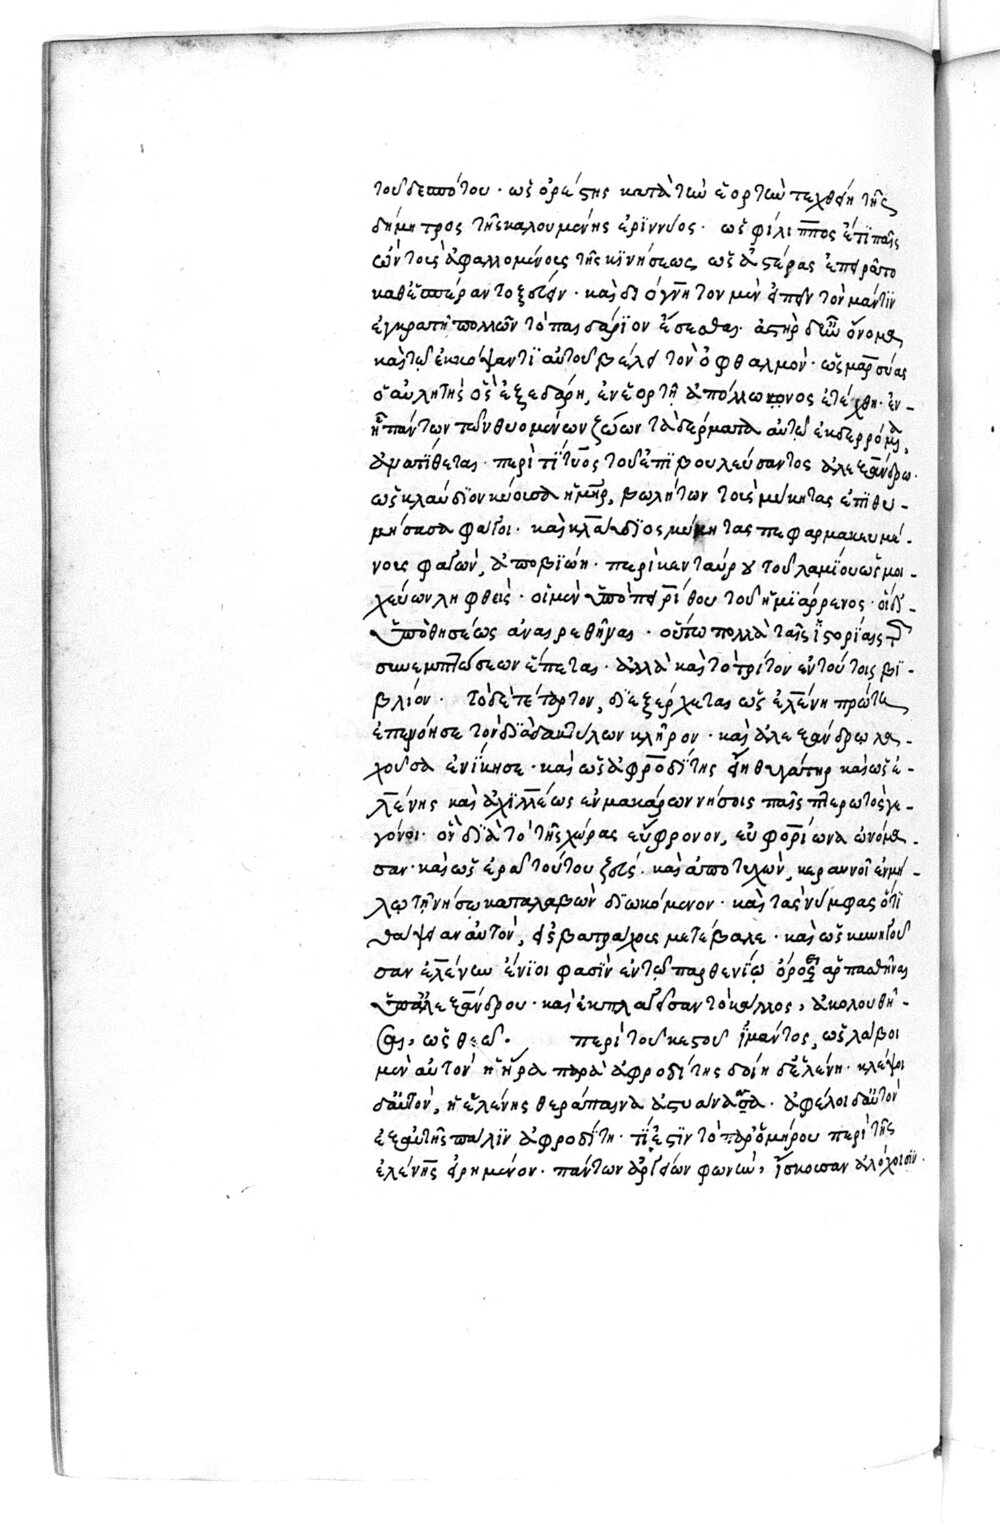 τοῦ δεσπότου · ὡς ὀρέστης κατὰ τὴν ἑορτὴν τεχθείη τῆς
δήμητρος τῆς καλουμένης ἐρϊννύος · ὡς φίλιππος ἔτι παῖς
ὢν τοῖς ἀφαλλομένοις τῆς κινήσεως ὡς ἀστέρας ἐπειρᾶτο
καθ' ἑσπέραν τοξεύειν · καὶ διόγνητον μὲν εἰπεῖν τὸν μάντϊν
ἐγκρατῆ πολλῶν τὸ παιδάριον ἔσεσθαι · ἀστὴρ δ' ἦν ὄνομα
καὶ τῷ ἐκκόψαντϊ αὐτοῦ βέλει τὸν ὀφθαλμόν · ὡς μαρσύας
ὁ αὐλητὴς ὃς ἐξεδάρη, ἐν ἑορτῇ ἀπόλλωνος ἐτέχθη · ἐν
ᾗ πάντων τῶν θυομένων ζώων τὰ δέρματα αὐτῷ ἐκδερρόμενα,
ἀνατίθεται · περὶ τίτυος τοῦ ἐπιβουλεύσαντος ἀλεξάνδρω ·
ὡς κλαύδιον κύουσα ἡ μήτηρ, βωλήτων τοὺς μύκητας ἐπϊθυ-
μήσασα φάγοι · καὶ κλαύδϊος μύκητας πεφαρμακευμέ-
νους φαγών, ἀποβιώη · περὶ κενταύρου τοῦ λαμίου ὡς μοι-
χεύων ληφθείς · οἱ μὲν ὑπὸ πειρίθου τοῦ ἡμϊάρρενος · οἱ δ'
ὑπὸ θησέως ἀναιρεθῆναι · οὕτω πολλὰ ταῖς ἱστορίαις περὶ
συνεμπτώσεων εἴρηται · ἀλλὰ καὶ τὸ τρίτον ἐν τούτοις βϊ-
βλίον · τὸ δὲ τέταρτον, διεξέρχεται ὡς ἑλένη πρώτη
ἐπενόησε τὸν διὰ δακτύλων κλῆρον · καὶ ἀλεξάνδρω λα-
χοῦσα ἐνίκησε · καὶ ὡς ἀφροδίτης εἴη θυγάτηρ καὶ ὡς ἑ-
λένης καὶ ἀχιλλέως ἐν μακάρων νήσοις παῖς πτερωτὸς γε-
γόνοι · ὃν διὰ τὸ τῆς χώρας εὔφρονον, εὐφορίωνα ὠνόμα-
σαν · καὶ ὡς ἐρᾷ τούτου ζεύς · καὶ ἀποτυχών, κεραυνοῖ ἐν μή-
λω τῇ νήσω καταλαβὼν διωκόμενον · καὶ τὰς νύμφας ὅτι
θάψειαν αὐτόν, εἰς βατράχους μετέβαλε · καὶ ὡς κυνηγοῦ-
σαν ἑλένην ἔνϊοι φασὶν ἐν τῷ παρθενίω ὄρος ἁρπασθῆναι
ὑπ' ἀλεξάνδρου · καὶ ἐκπλαγεῖσαν τὸ κάλλος, ἀκολουθῆ-
σαι, ὡς θεῷ · περὶ τοῦ κεστοῦ ἱμάντος, ὡς λάβοι
μὲν αὐτὸν ἡ ἥρα παρὰ ἀφροδίτης δοίη δ' ἑλένη · κλέψοι
δ' αὐτόν, ἡ ἑλένης θεράπαινα ἀστυάνασσα · ἀφέλοι δ' αὐτὸν
ἐξ αὐτῆς πάλϊν ἀφροδίτη · τί ἐστϊν τὸ παρ' ὁμήρου περὶ τῆς
ἑλένης εἰρημένον · πάντων ἀργείων φωνήν, ἴσκουσαν ἀλόχοισϊν ·